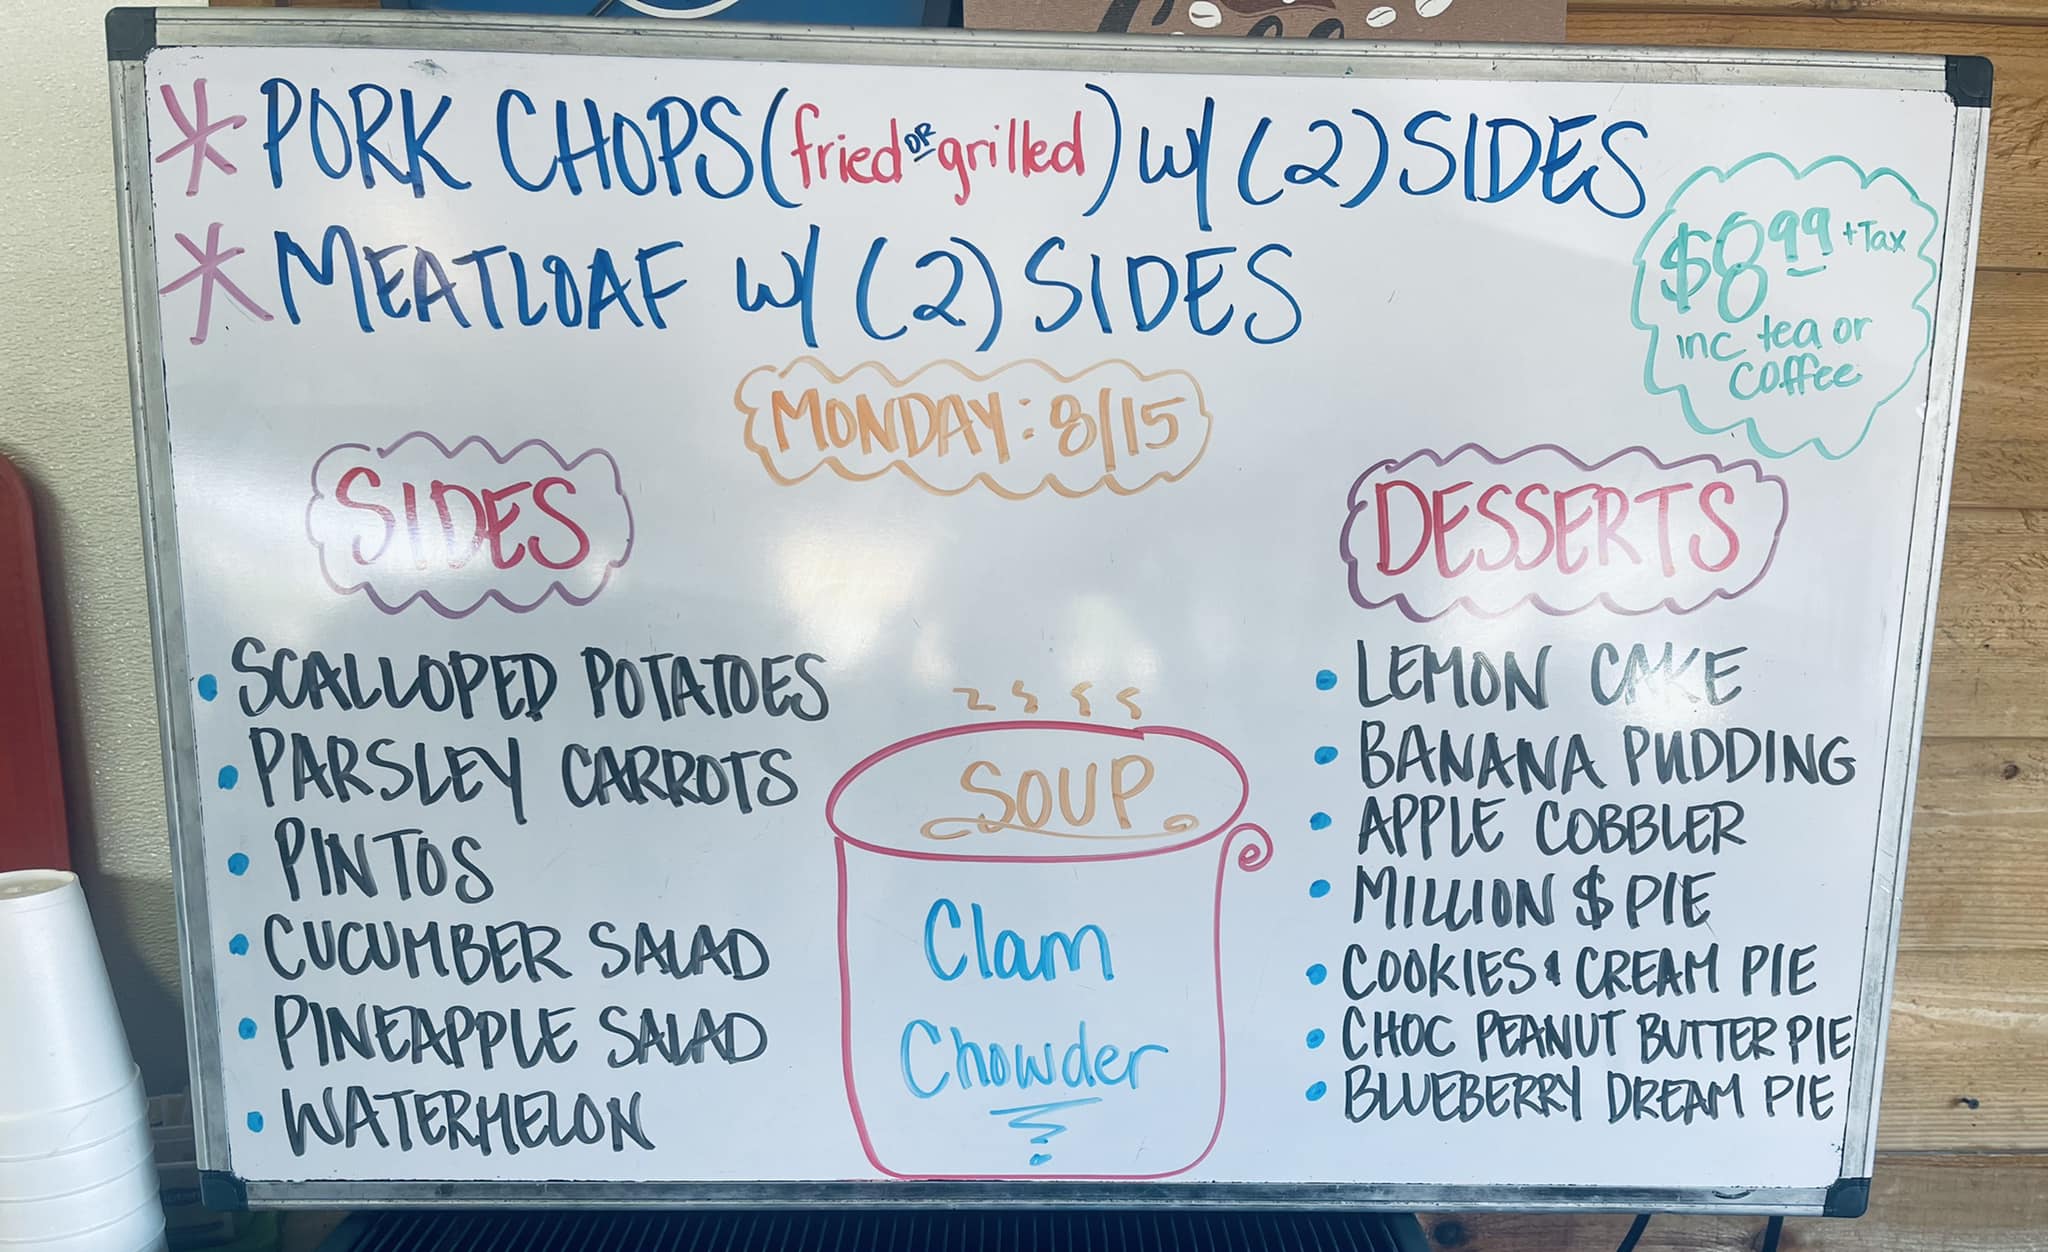 * PORK CHOPS (fried OR grilled) w/ (2) SIDES
* MEATLOAF w/ (2) SIDES
$8.99 + Tax
inc tea or
coffee
MONDAY: 8/15
SIDES
• SCALLOPED POTATOES
• PARSLEY CARROTS
• PINTOS
• CUCUMBER SALAD
• PINEAPPLE SALAD
• WATERMELON
SOUP
Clam
Chowder
DESSERTS
• LEMON CAKE
• BANANA PUDDING
• APPLE COBBLER
• MILLION $ PIE
• COOKIES & CREAM PIE
• CHOC PEANUT BUTTER PIE
• BLUEBERRY DREAM PIE